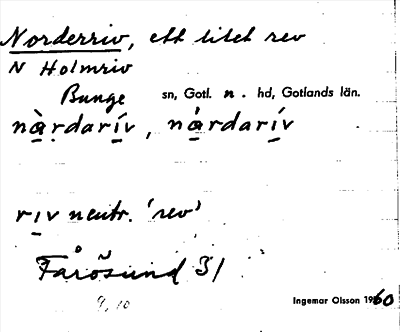 Norderriv, ett litet rev
N Holmriv
Bunge sn, Gotl. n. hd, Gotlands län.
nàrdarív, nárdarív
riv neutr. 'rev'
Fårösund 31
Ingemar Olsson 1960
9, 10